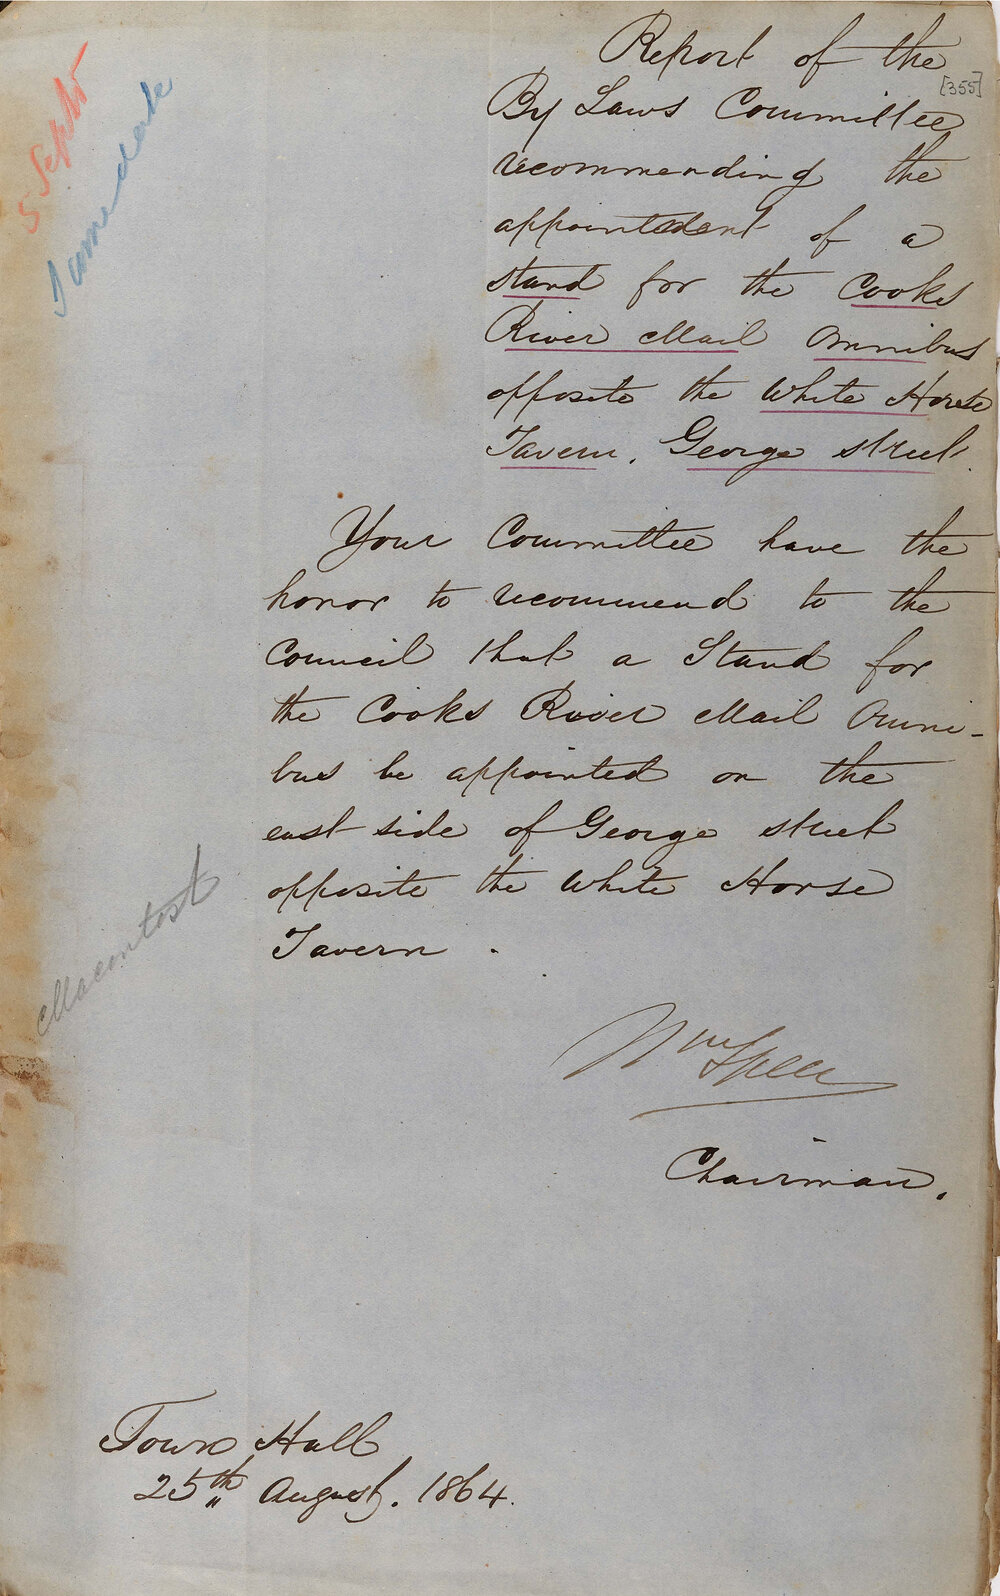 Report of the
[355]
By Laws Committee
recommending the
appointment of a
stand for the Cooks
River Mail Omnibus
opposite the White Horse
Tavern, George street.
5 Septr
Same date
Your Committee have the
honor to recommend to the
Council that a Stand for
the Cooks River Mail Omni-
bus be appointed on the
east side of George street
opposite the White Horse
Tavern.
Macintosh
Wm Speer
Chairman.
Town Hall
25th August. 1864.